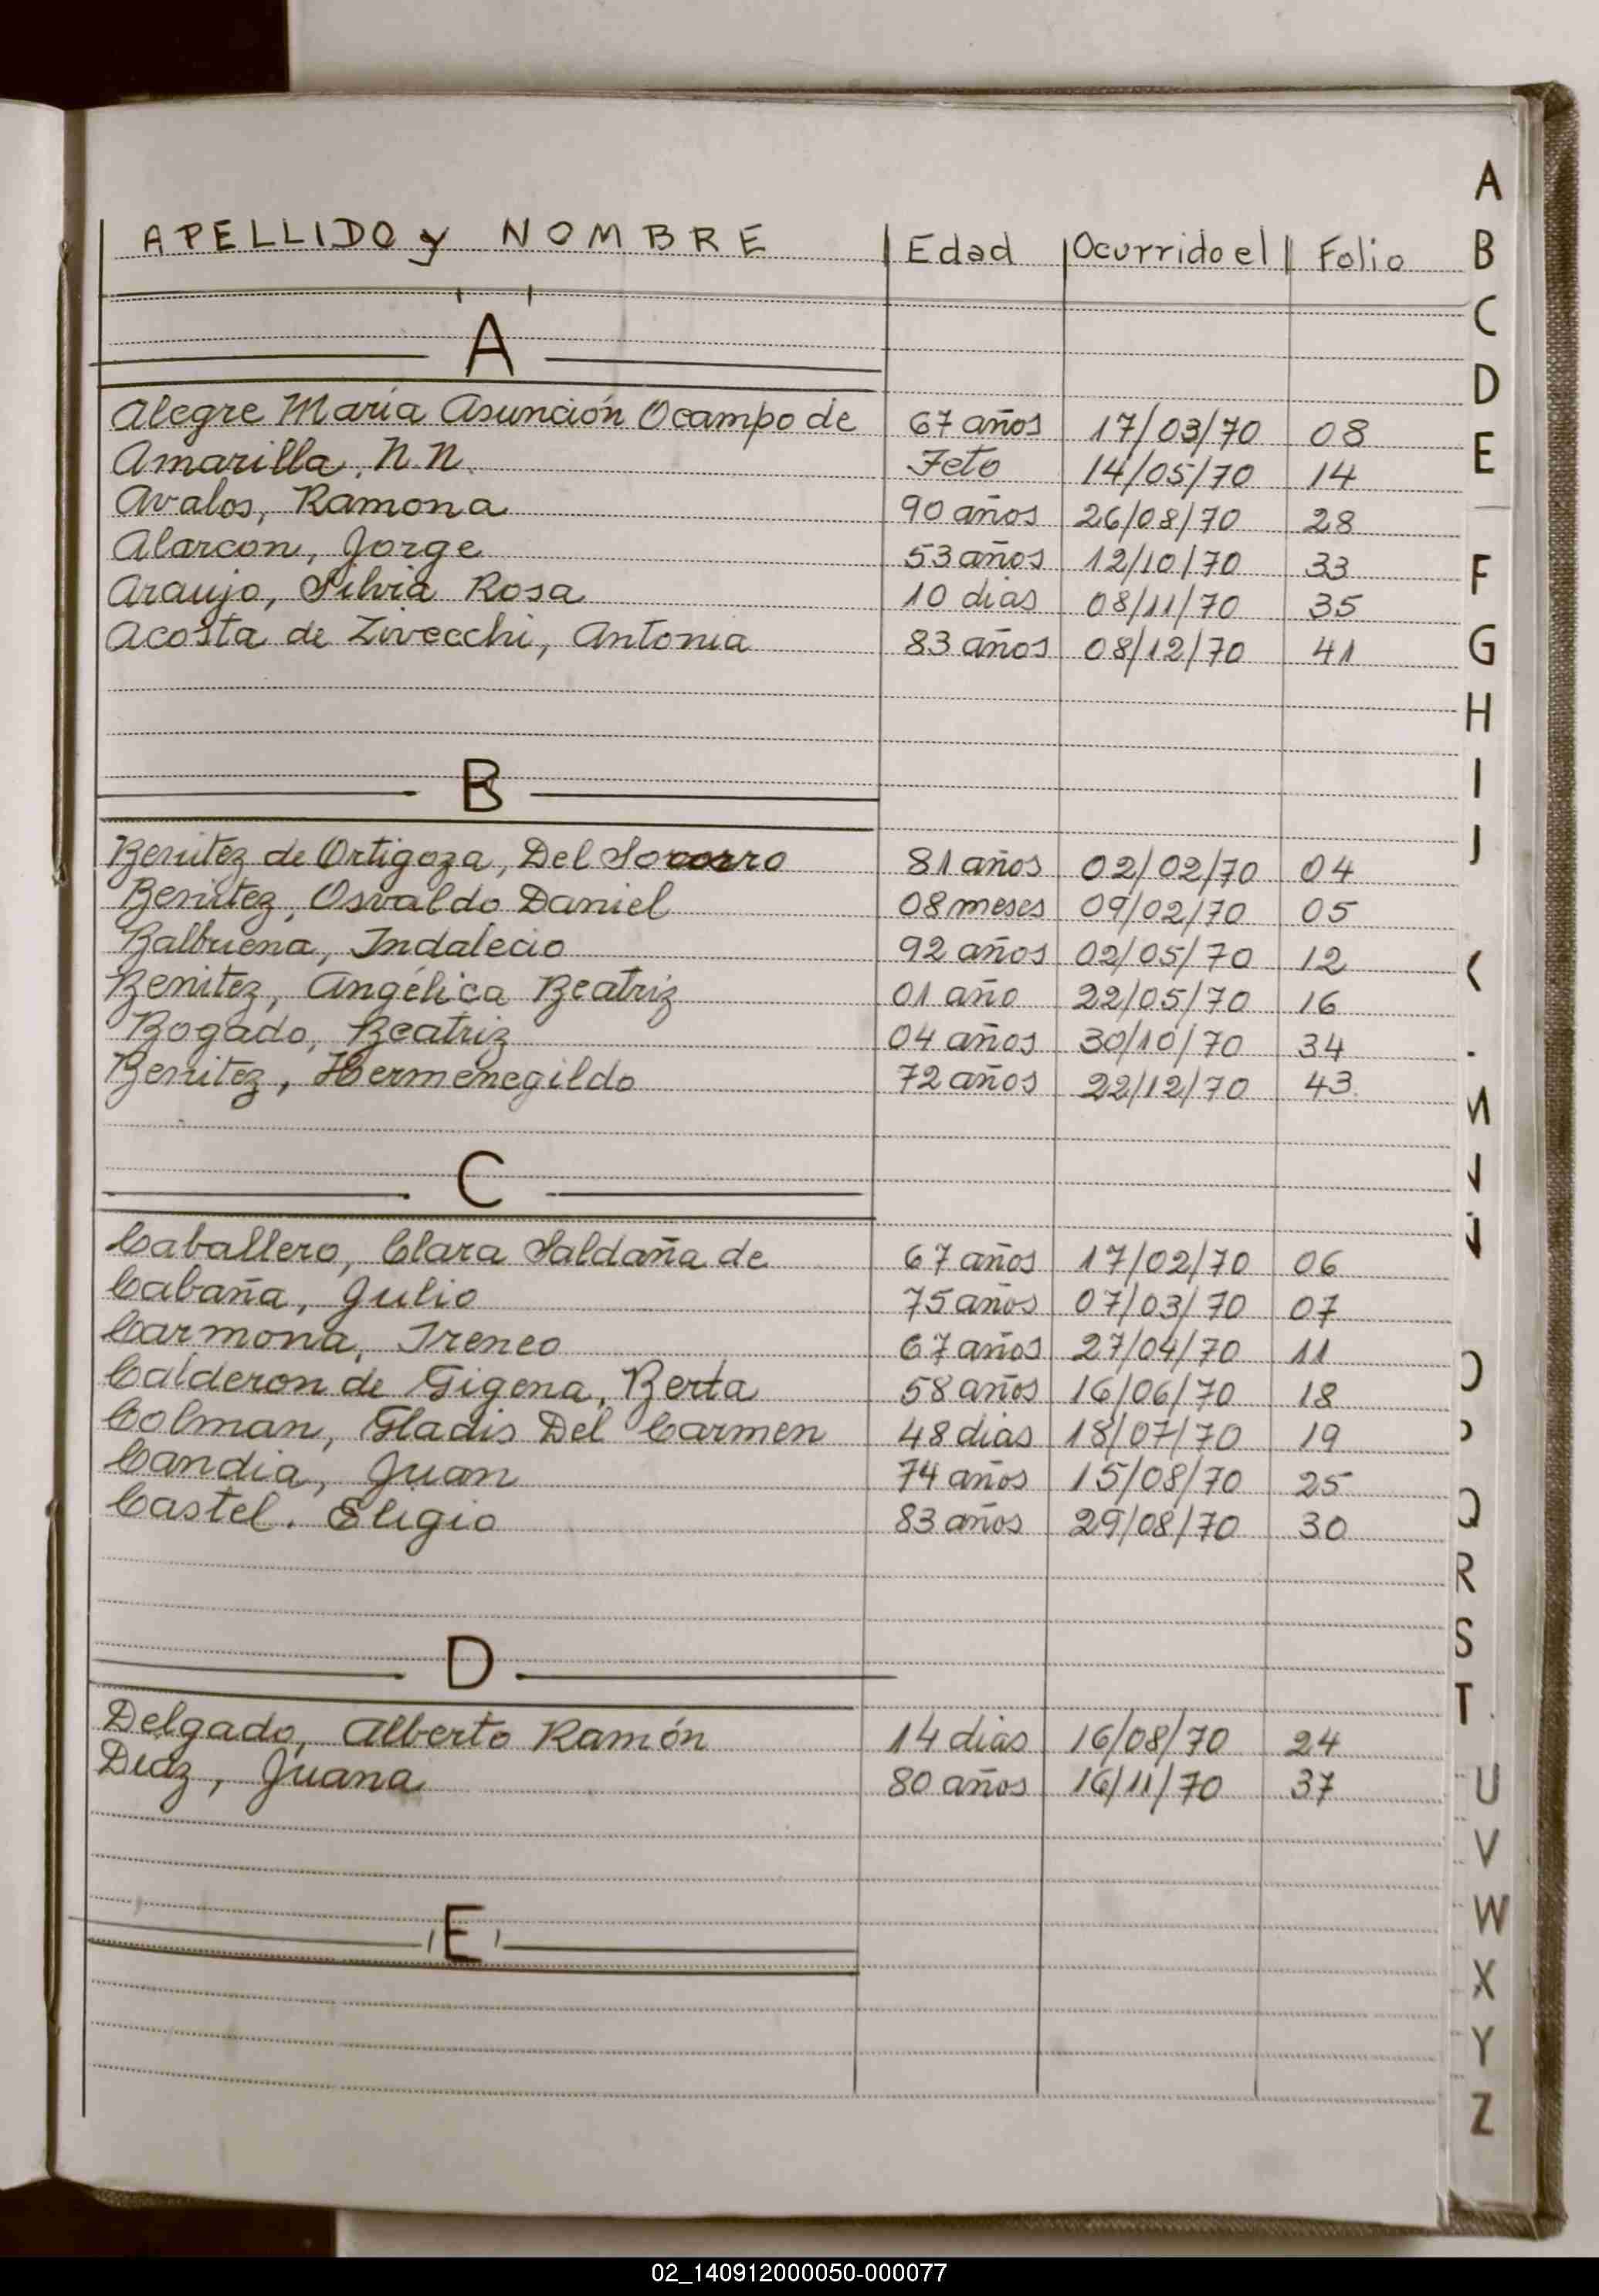 APELLIDO y NOMBRE Edad Ocurrido el Folio
A
Alegre María Asunción Ocampo de 67 años 17/03/70 08
Amarilla, N.N. Feto 14/05/70 14
Avalos, Ramona 90 años 26/08/70 28
Alarcon, Jorge 53 años 12/10/70 33
Araujo, Silvia Rosa 10 dias 08/11/70 35
Acosta de Zivecchi, Antonia 83 años 08/12/70 41
B
Benitez de Ortigoza, Del Socorro 81 años 02/02/70 04
Benitez, Osvaldo Daniel 08 meses 09/02/70 05
Balbuena, Indalecio 92 años 02/05/70 12
Benitez, Angélica Beatriz 01 año 22/05/70 16
Bogado, Beatriz 04 años 30/10/70 34
Benitez, Hermenegildo 72 años 22/12/70 43
C
Caballero, Clara Saldaña de 67 años 17/02/70 06
Cabaña, Julio 75 años 07/03/70 07
Carmona, Ireneo 67 años 27/04/70 11
Calderon de Gigena, Berta 58 años 16/06/70 18
Colman, Gladis Del Carmen 48 dias 18/07/70 19
Candia, Juan 74 años 15/08/70 25
Castel. Eligio 83 años 29/08/70 30
D
Delgado, Alberto Ramón 14 dias 16/08/70 24
Diáz, Juana 80 años 16/11/70 37
E
A
B
C
D
E
F
G
H
I
J
Q
R
S
T
U
V
W
X
Y
Z
02_140912000050-000077